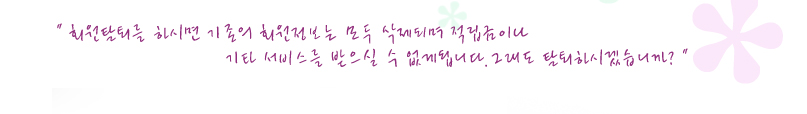 " 회원탈퇴를 하시면 기존의 회원정보는 모두 삭제되며 적립금이나
기타 서비스를 받으실 수 없게됩니다. 그래도 탈퇴하시겠습니까? "